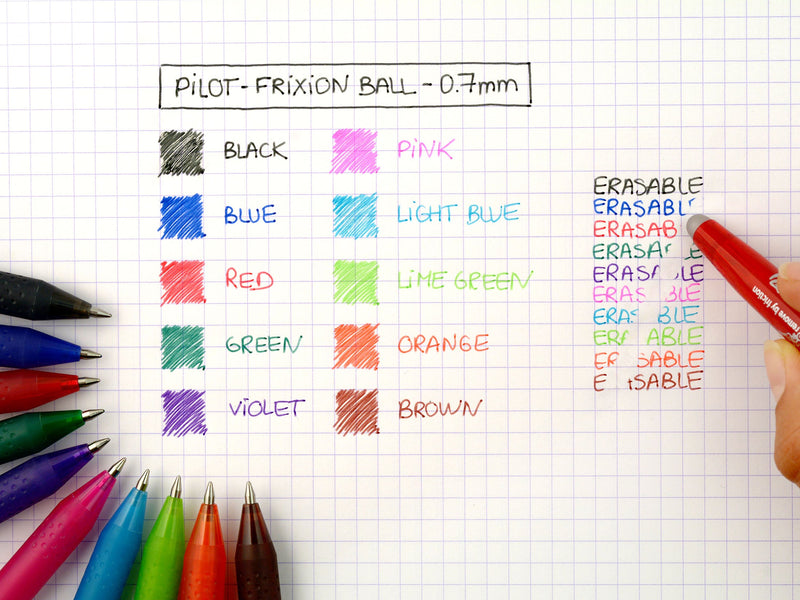 PILOT - FRIXION BALL - 0.7mm
BLACK
BLUE
RED
GREEN
VIOLET
PINK
LIGHT BLUE
LIME GREEN
ORANGE
BROWN
ERASABLE
ERASABL
ERASAB
ERASA E
ERASA LE
ERAS BLE
ERAS BLE
ERA ABLE
ER SABLE
E SABLE
remove by friction